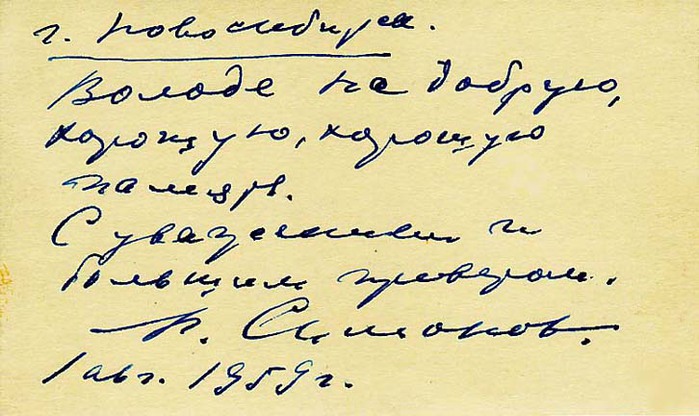 г. Новосибирск.
Володе на добрую,
хорошую, хорошую
память.
С уважением и
большим приветом.
Н. Симонов.
1 авг. 1959 г.